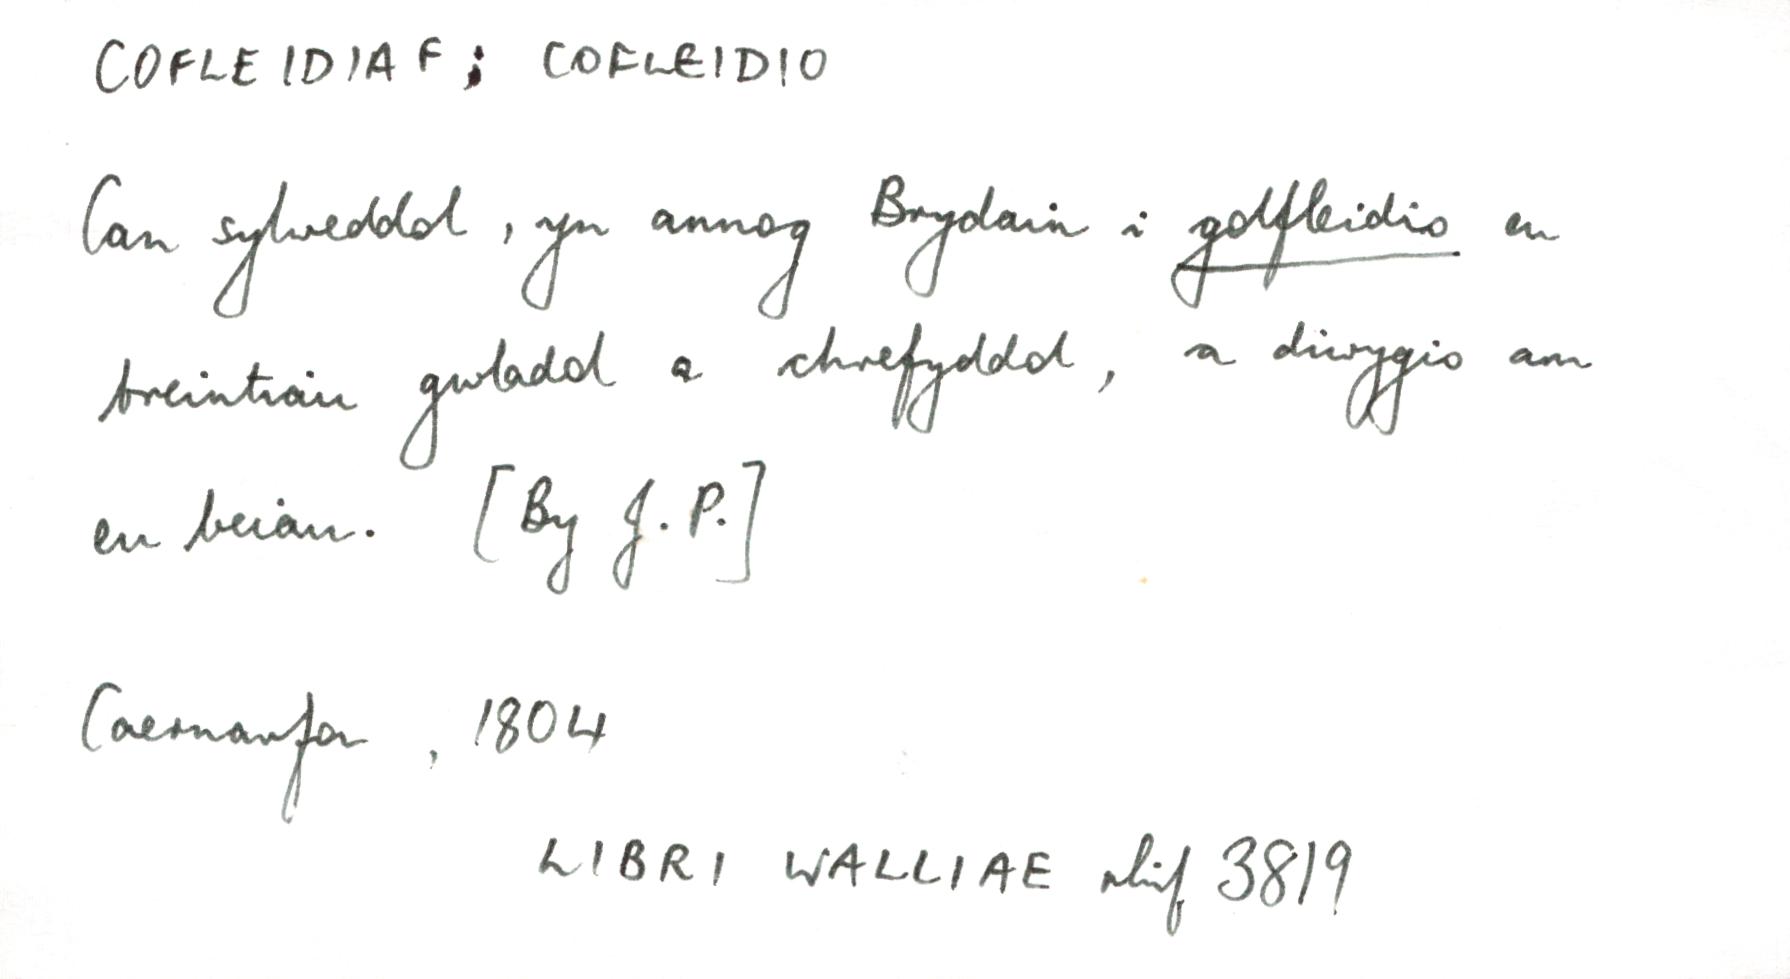 COFLEIDIAF; COFLEIDIO
Can sylweddol, yn annog Brydain i golfleidio eu
breintiau gwladol a chrefyddol, a diwygio am
eu beiau. [By J.P.]
Caernarfon, 1804
LIBRI WALLIAE rhif 3819